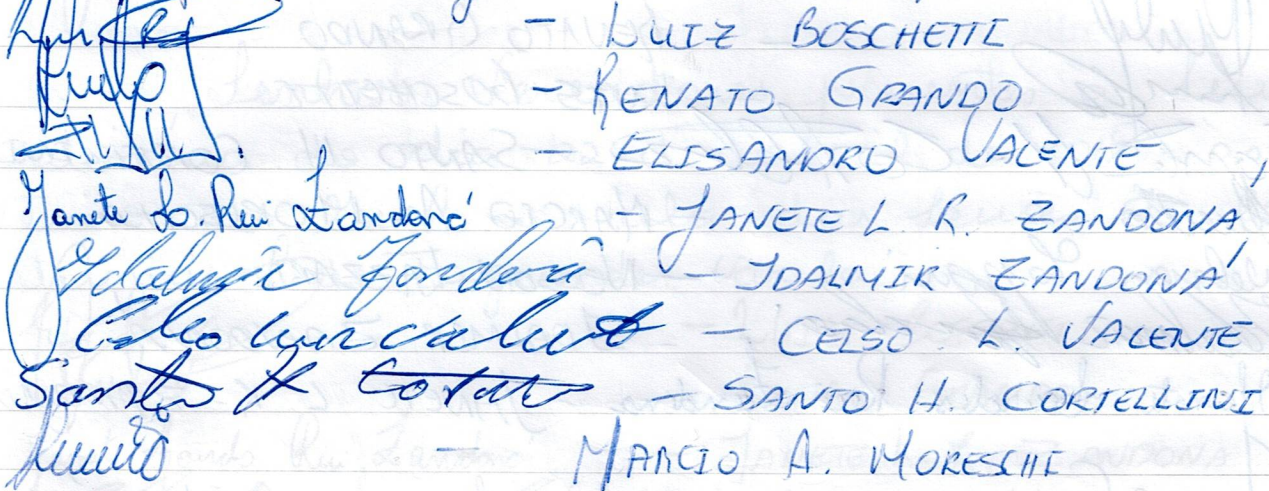 - LUIZ BOSCHETTI
- RENATO GRANDO
- ELISANDRO VALENTE,
Janete L. Rui Zandoná - JANETE L. R. ZANDONÁ
Idalmir Zandoná - IDALMIR ZANDONÁ
Celso Luiz Valente - CELSO L. VALENTE
Santo H Cortellini - SANTO H. CORTELLINI
- MARCIO A. MORESCHI